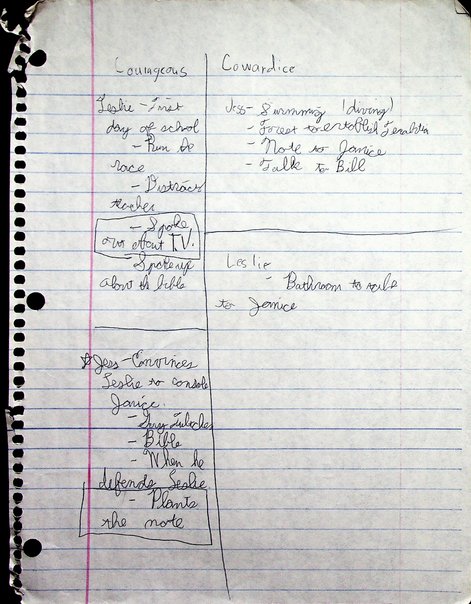 Courageous
Leslie - First
day of school
- Run the
race
- Distracts
teacher
- Spoke
out about T.V.
- Spoke up
about the bible
Jess - Convinces
Leslie to console
Janice.
- Bible
- When he
defends Leslie
- Plants
the note
Cowardice
Jess - Swimming (diving)
- Forest to establish Terabithia
- Note to Janice
- Talk to Bill
Leslie
- Bathroom to talk
to Janice